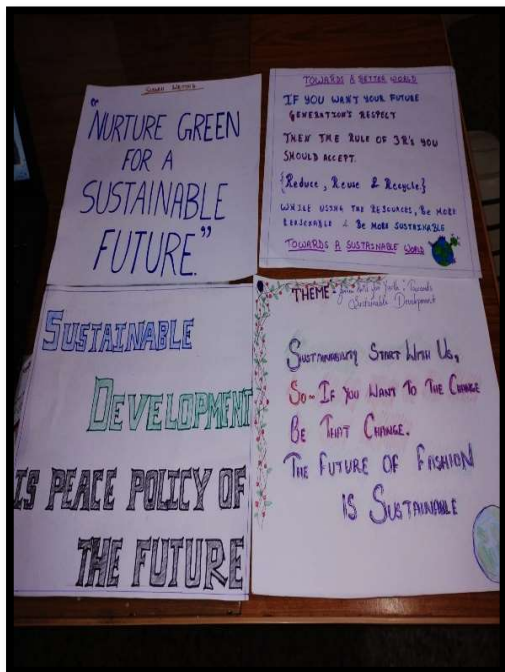 SLOGAN WRITING
"NURTURE GREEN
FOR A
SUSTAINABLE
FUTURE."
TOWARDS A BETTER WORLD
IF YOU WANT YOUR FUTURE
GENERATION'S RESPECT
THEN THE RULE OF 3R's YOU
SHOULD ACCEPT.
{Reduce, Reuse & Recycle}
WHILE USING THE RESOURCES, BE MORE
REASONABLE & BE MORE SUSTAINABLE
TOWARDS A SUSTAINABLE WORLD
SUSTAINABLE
DEVELOPMENT
IS PEACE POLICY OF
THE FUTURE
THEME:- for Youth: Towards
Sustainable Development
SUSTAINABILITY START WITH US,
SO- IF YOU WANT TO THE CHANGE
BE THAT CHANGE.
THE FUTURE OF FASHION
IS SUSTAINABLE